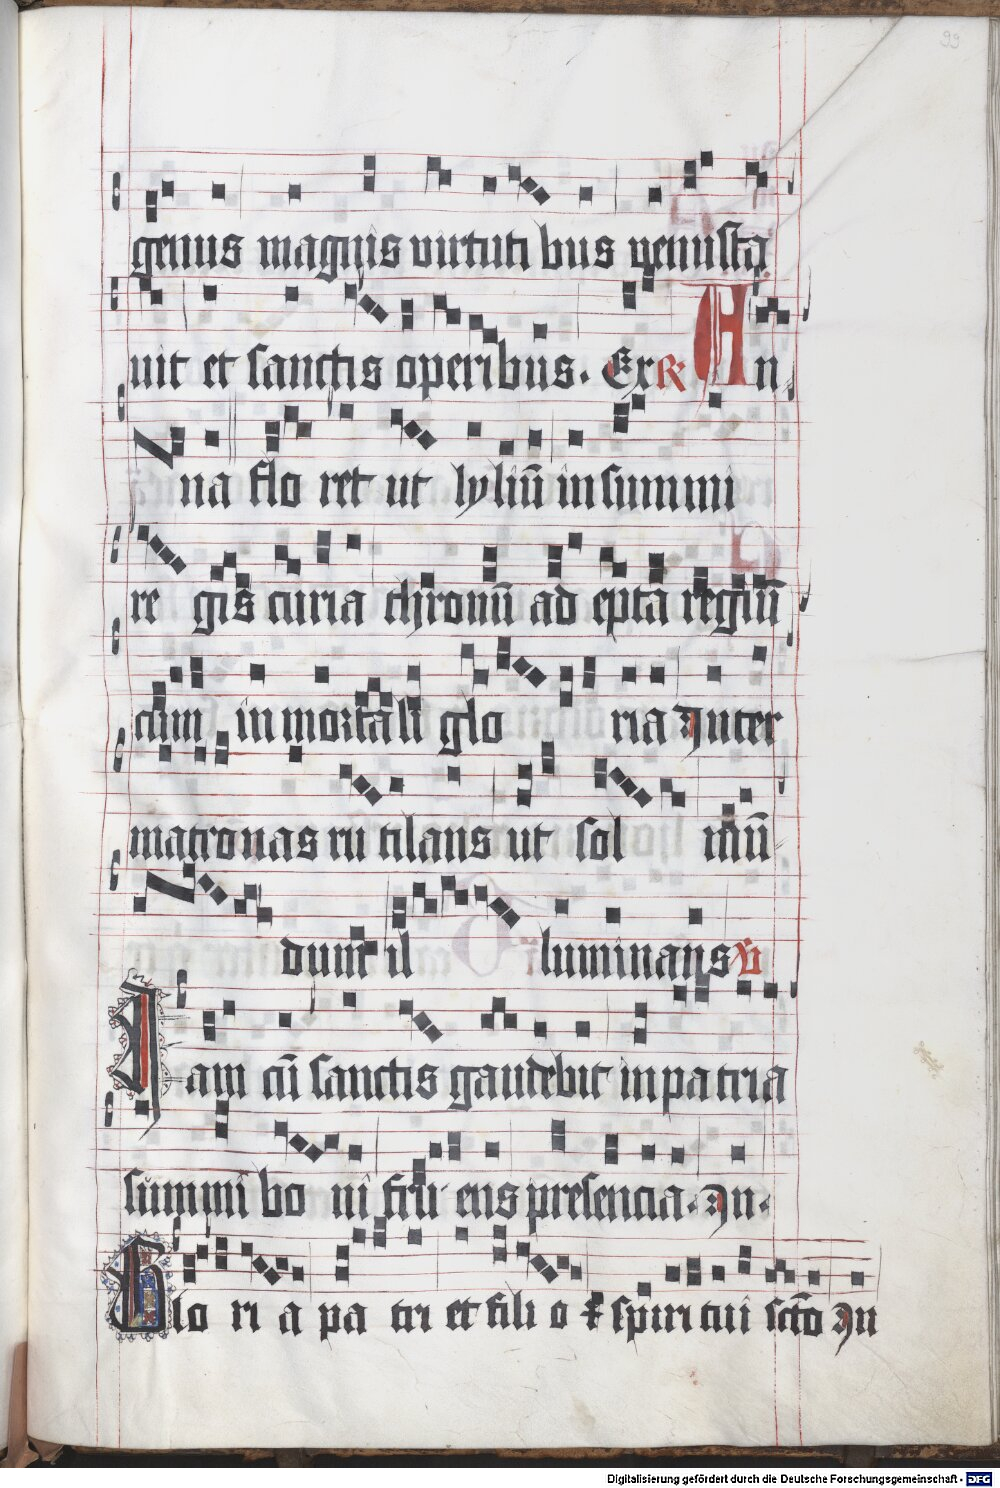 99
genus magnis virtuti bus venusta
uit et sanctis operibus. Ex ℟ An
na flo ret ut lyliū in summi
re gis curia thronū ad epta regiū
cum in mortali glo ria Inter
matronas ru tilans ut sol mū
dum il luminans ℣
Iam cū sanctis gaudebit in pa tria
summi bo ni fru ens presencia. In.
Glo ri a pa tri et fili o & spiri tui scto In
Digitalisierung gefördert durch die Deutsche Forschungsgemeinschaft - DFG